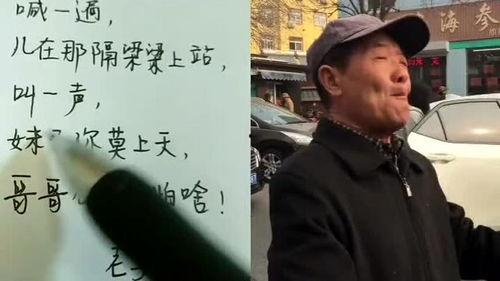 喊一遍,
儿在那隔梁梁上站,
叫一声,
妹 你莫上天,
哥哥 怕啥!
老
海参